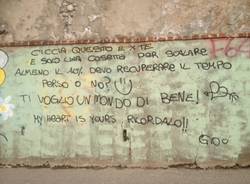 CICCIA QUESTO È X TE
E SOLO UNA COSETTA PER SALARE
ALMENO IL 10% DEVO RECUPERARE IL TEMPO
PERSO O NO?
TI VOGLIO UN MONDO DI BENE!
MY HEART IS YOURS RICORDALO!!
GIO